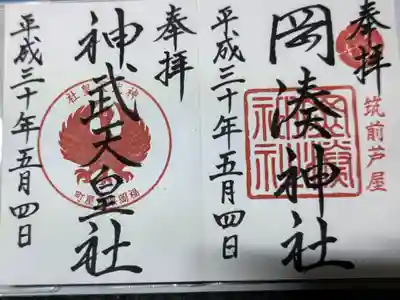 奉拝
筑前芦屋
岡湊神社
平成三十年五月四日
奉拝
神武天皇社
平成三十年五月四日